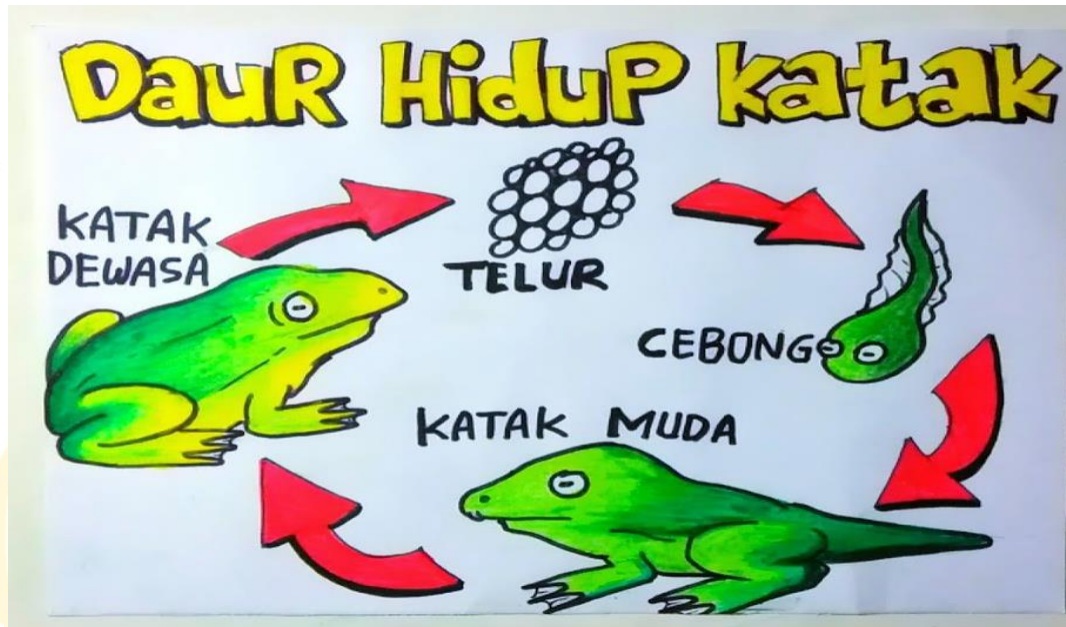 DauR HiduP katak
KATAK
DEWASA
TELUR
CEBONG
KATAK MUDA